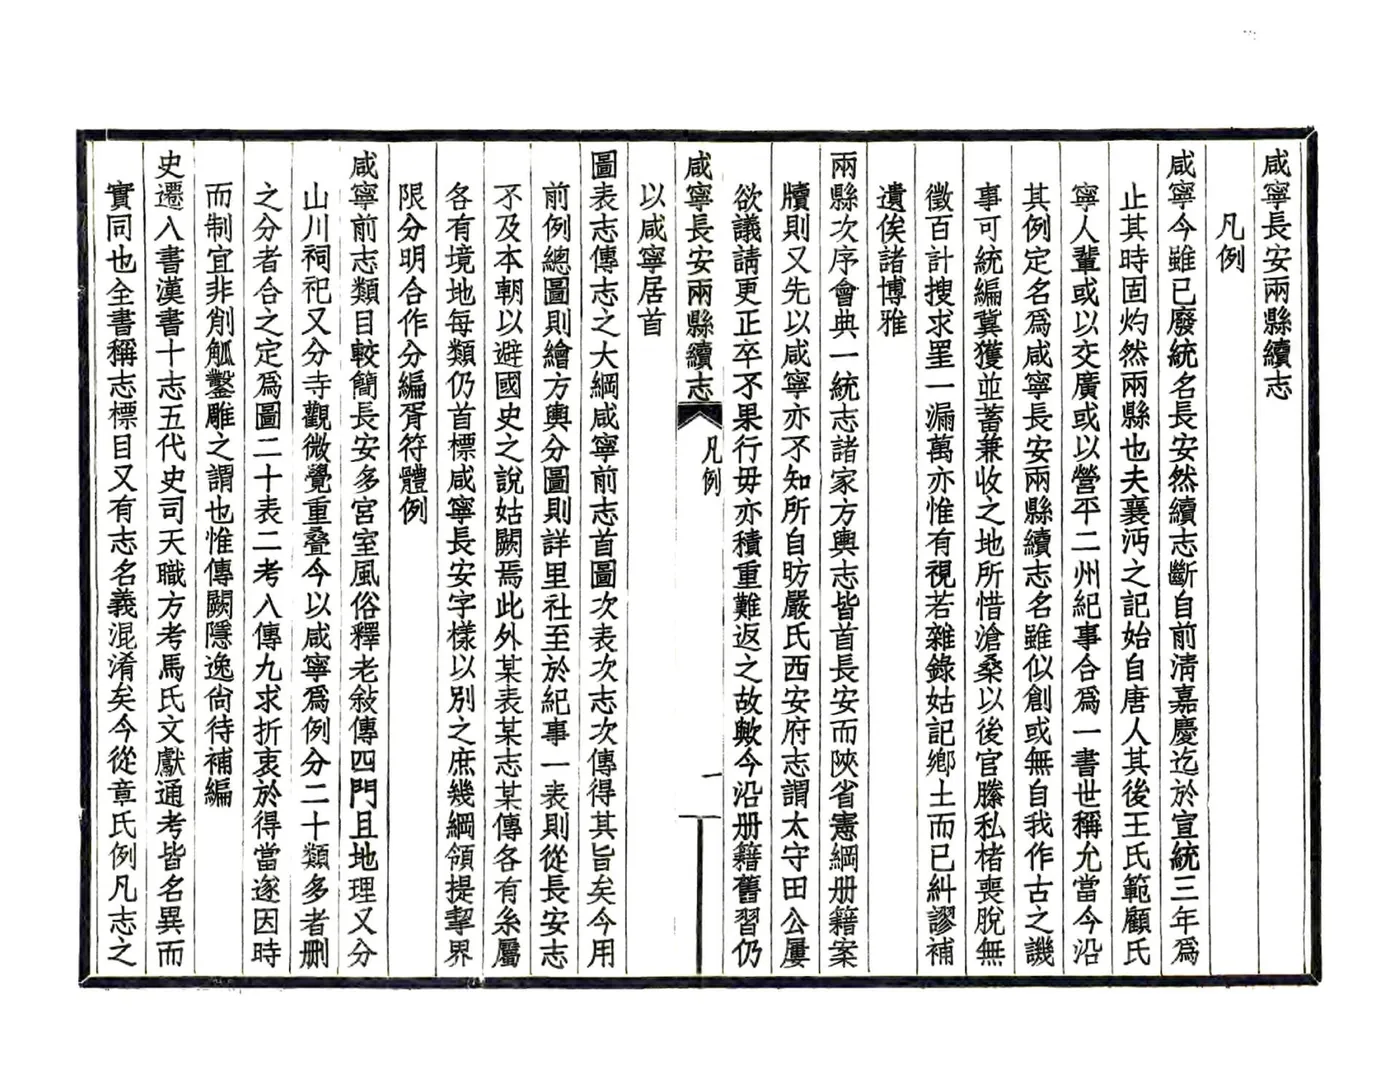 咸寧長安兩縣續志
凡例
咸寧今雖已廢統名長安然續志斷自前清嘉慶迄於宣統三年爲
止其時固灼然兩縣也夫襄沔之記始自唐人其後王氏範顧氏
寧人輩或以交廣或以營平二州紀事合爲一書世稱允當今沿
其例定名爲咸寧長安兩縣續志名雖似創或無自我作古之譏
事可統編冀獲並蓄兼收之地所惜滄桑以後官牘私楮喪脫無
徵百計搜求罣一漏萬亦惟有視若雜錄姑記鄉土而已糾謬補
遺俟諸博雅
兩縣次序會典一統志諸家方輿志皆首長安而陝省憲綱册籍案
牘則又先以咸寧亦不知所自昉嚴氏西安府志謂太守田公屢
欲議請更正卒不果行毋亦積重難返之故歟今沿册籍舊習仍
咸寧長安兩縣續志 凡例 一
以咸寧居首
圖表志傳志之大綱咸寧前志首圖次表次志次傳得其旨矣今用
前例總圖則繪方輿分圖則詳里社至於紀事一表則從長安志
不及本朝以避國史之說姑闕焉此外某表某志某傳各有系屬
各有境地每類仍首標咸寧長安字樣以別之庶幾綱領提挈界
限分明合作分編胥符體例
咸寧前志類目較簡長安多宮室風俗釋老敍傳四門且地理又分
山川祠祀又分寺觀微覺重疊今以咸寧爲例分二十類多者删
之分者合之定爲圖二十表二考八傳九求折衷於得當遂因時
而制宜非削觚鑿雕之謂也惟傳闕隱逸尙待補編
史遷八書漢書十志五代史司天職方考馬氏文獻通考皆名異而
實同也全書稱志標目又有志名義混淆矣今從章氏例凡志之